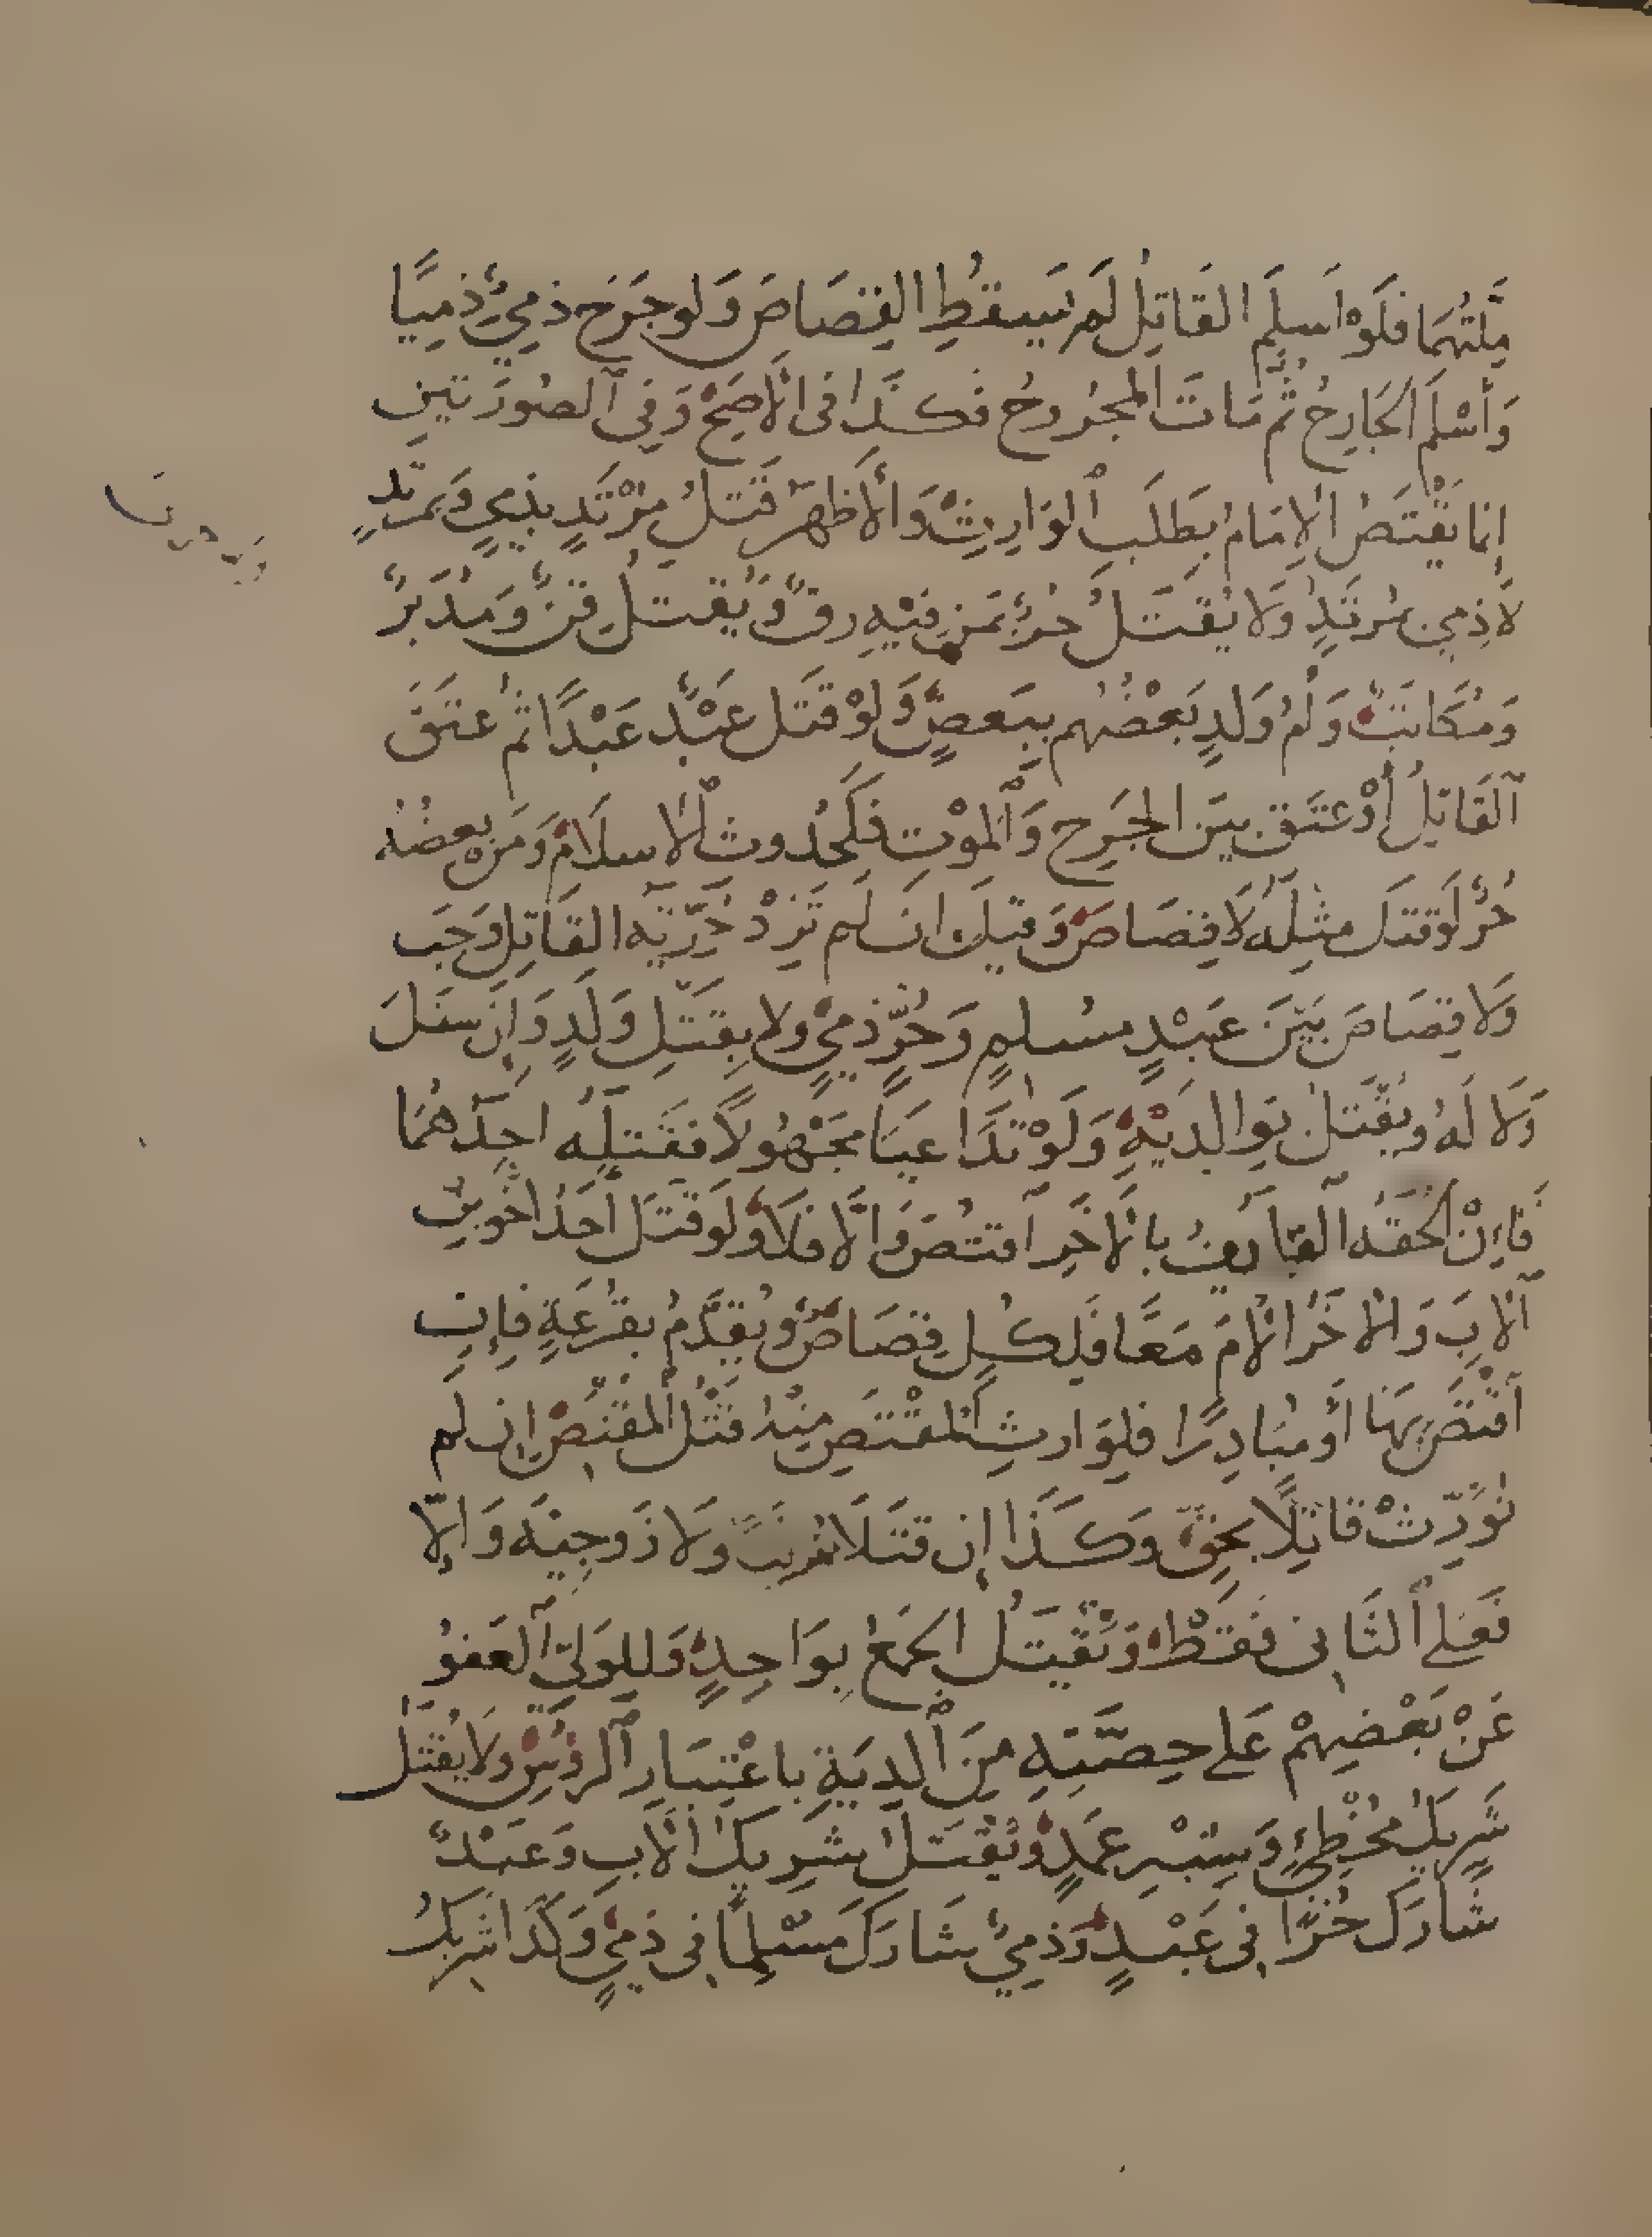 مِّلَّتُهُمَا فَلَوْ اَسلَمَ القَاتِلُ لَم يَسقُطِ القِصَاصُ وَلو جَرَحَ ذمِيٌّ ذِمِيًا
وَأسْلَمَ الجَارحُ ثُمَّ مَاتَ المجرُوحُ فكَذَا فى الأَصَحِّ وَفِى الصُورَتينِ
إنما يَقْتَصُ الإِمَامُ بطَلَبِ الوَارِثِ وَالأَظهَرُ قَتلُ مُرْتَدٍ بذِميٍ وَبمرتَدٍ
لاَ ذِمي بمُرتَدٍ وَلا يُقتَلُ حُرٌّ بمَن فيْهِ رِقٌ وَيُقتلُ قِنٌّ وَمُدَبَّرٌ
وَمُكَاتَبٌ وَأمُ وَلدٍ بَعْضُهم ببَعضٍ وَلَوْ قتَل عَبْدٌ عَبْدًا ثم عتَقَ
القَاتِلُ أوْ عتَقَ بيَن الجَرحِ وَالمَوْتِ فكَحُدوثِ الإسلاَمِ وَمَنْ بعضُهُ
حُرٌّ لَو قتَل مثِلَهُ لاَ قِصَاصَ وَقيلَ ان لَم تَزدْ حُرّيَّه القَاتِل وَجَب
وَلا قِصَاصَ بَيْنَ عَبْدٍ مسُلمٍ وَحُرٍّ ذمِيٍّ ولا بِقَتلِ وَلَدٍ وَإن سفَلَ
وَلَا لَهُ ويُقْتَل بوَالِديْهِ وَلَوْ تدَاعيَا مجْهُولًا فقَتلَه احَدُهمَا
فَإِنْ الحَقَهُ القَائفُ بالأخَر اقتُصَّ وَإلَّا فلاَ وَلَو قَتَل أحَدُ اخَوينِ
الأبَ وَالاخَرُ الأمَّ مَعًا فَلِكُلٍ قِصَاصٌ وَيُقدَّمُ بقُرعَةٍ فإن
اَقْتَصَّ بهَا اَو مُبَادِرًا فلِوَارثِ المقْتَصِ مِنْهُ قَتْلُ المقْتَصِّ إن لم
نُوَرّثْ قاتِلًا بحِقٍّ وكَذَا إن قتَلَا مُرتبًا وَلا زَوجِيَه وَإلّا
فَعَلى الثَانى فقَطْ وَيُقْتَلُ الجمَعُ بوَاحِدٍ وَللوَلىِّ العَفوُ
عَنْ بَعْضِهِمْ عَلى حِصَّتِهِ مِنَ الديَةِ باعْتِبَارِ الرؤُسِ وَلَا يُقْتَل
شَرِيكُ مُخْطِئٍ وَشِبْهِ عمَدٍ وَيُقْتَلُ شَرِيكُ الأبِ وَعَبْدٌ
شَارَك حُرًّا فى عَبْدٍ وَذميٌّ شَارَكَ مسْلِمًا فى ذمِّيٍ وَكَذَا شَرِيكُ